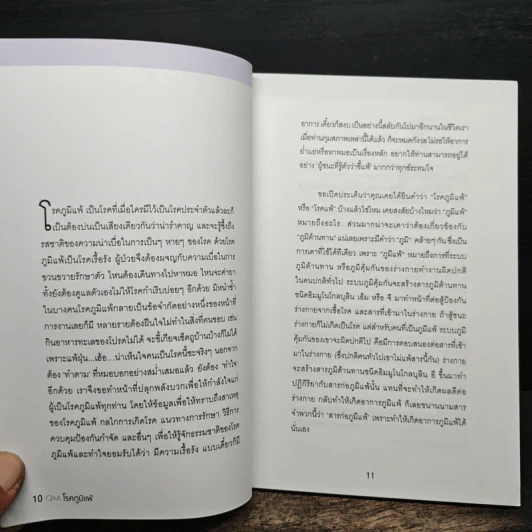 โรคภูมิแพ้ เป็นโรคที่เมื่อใครมีไว้เป็นโรคประจำตัวแล้วละก็
เป็นต้องบ่นเป็นเสียงเดียวกันว่าน่ารำคาญ และจะรู้ซึ้งถึง
รสชาติของความน่าเบื่อในการเป็นๆ หายๆ ของโรค ด้วยโรค
ภูมิแพ้เป็นโรคเรื้อรัง ผู้ป่วยจึงต้องผจญกับความเบื่อในการ
ขวนขวายรักษาตัว ไหนต้องเดินทางไปหาหมอ ไหนจะค่ายา
ทั้งยังต้องดูแลตัวเองไม่ให้โรคกำเริบบ่อยๆ อีกด้วย มิหนำซ้ำ
ในบางคนโรคภูมิแพ้กลายเป็นข้อจำกัดอย่างหนึ่งของหน้าที่
การงานเลยก็มี หลายรายต้องฝืนใจไม่ทำในสิ่งที่ตนชอบ เช่น
กินอาหารทะเลของโปรดไม่ได้ จะขี้เกียจเช็ดถูบ้านบ้างก็ไม่ได้
เพราะแพ้ฝุ่น...เฮ้อ...น่าเห็นใจคนเป็นโรคนี้ซะจริงๆ นอกจาก
ต้อง 'ทำตาม' ที่หมอบอกอย่างสม่ำเสมอแล้ว ยังต้อง 'ทำใจ'
อีกด้วย เราจึงขอทำหน้าที่ปลุกพลังบวกเพื่อให้กำลังใจแก่
ผู้เป็นโรคภูมิแพ้ทุกท่าน โดยให้ข้อมูลเพื่อให้ทราบถึงสาเหตุ
ของโรคภูมิแพ้ กลไกการเกิดโรค แนวทางการรักษา วิธีการ
ควบคุมป้องกันกำจัด และอื่นๆ เพื่อให้รู้จักธรรมชาติของโรค
ภูมิแพ้และทำใจยอมรับได้ว่า มีความเรื้อรัง แบบเดี๋ยวก็มี
10 Q&A โรคภูมิแพ้
อาการ เดี๋ยวก็สงบ เป็นอย่างนี้สลับกันไปมาอีกนานในชีวิตเรา
เมื่อท่านกุมสภาพเหล่านี้ได้แล้ว ก็จะหมดกังวล ไม่รอให้อาการ
ย่ำแย่หรือหาหมอเป็นเรื่องหลัก อยากให้ท่านสามารถอยู่ได้
อย่าง 'ผู้ชนะที่รู้ตัวว่าขี้แพ้' มากกว่าทุกข์ระทมใจ
ขอเปิดประเด็นว่าคุณเคยได้ยินคำว่า "โรคภูมิแพ้"
หรือ "โรคแพ้" บ้างแล้วใช่ไหม เคยสงสัยบ้างไหมว่า "ภูมิแพ้"
หมายถึงอะไร ส่วนมากน่าจะเดาว่าต้องเกี่ยวข้องกับ
"ภูมิต้านทาน" แน่เลยเพราะมีคำว่า "ภูมิ" คล้ายๆ กัน ซึ่งเป็น
การเดาที่ใช้ได้ทีเดียว เพราะ "ภูมิแพ้" หมายถึงการที่ระบบ
ภูมิต้านทาน หรือภูมิคุ้มกันของร่างกายทำงานผิดปกติ
ในคนปกติทั่วไป ระบบภูมิคุ้มกันจะสร้างสารภูมิต้านทาน
ชนิดอิมมูโนโกลบูลิน เอ็ม หรือ จี มาทำหน้าที่ต่อสู้ป้องกัน
ร่างกายจากเชื้อโรค และสารที่เข้ามาในร่างกาย ถ้าสู้ชนะ
ร่างกายก็ไม่เกิดเป็นโรค แต่สำหรับคนที่เป็นภูมิแพ้ ระบบภูมิ
คุ้มกันของเขาจะผิดปกติไป คือมีการตอบสนองต่อสารที่เข้า
มาในร่างกาย (ซึ่งปกติคนทั่วไปเขาไม่แพ้สารนี้กัน) ร่างกาย
จะสร้างสารภูมิต้านทานชนิดอิมมูโนโกลบูลิน อี ขึ้นมาทำ
ปฏิกิริยากับสารก่อภูมิแพ้นั้น แทนที่จะทำให้เกิดผลดีต่อ
ร่างกาย กลับทำให้เกิดอาการภูมิแพ้ ก็เลยขนานนามสาร
จำพวกนี้ว่า 'สารก่อภูมิแพ้' เพราะทำให้เกิดอาการภูมิแพ้ได้
นั่นเอง
11